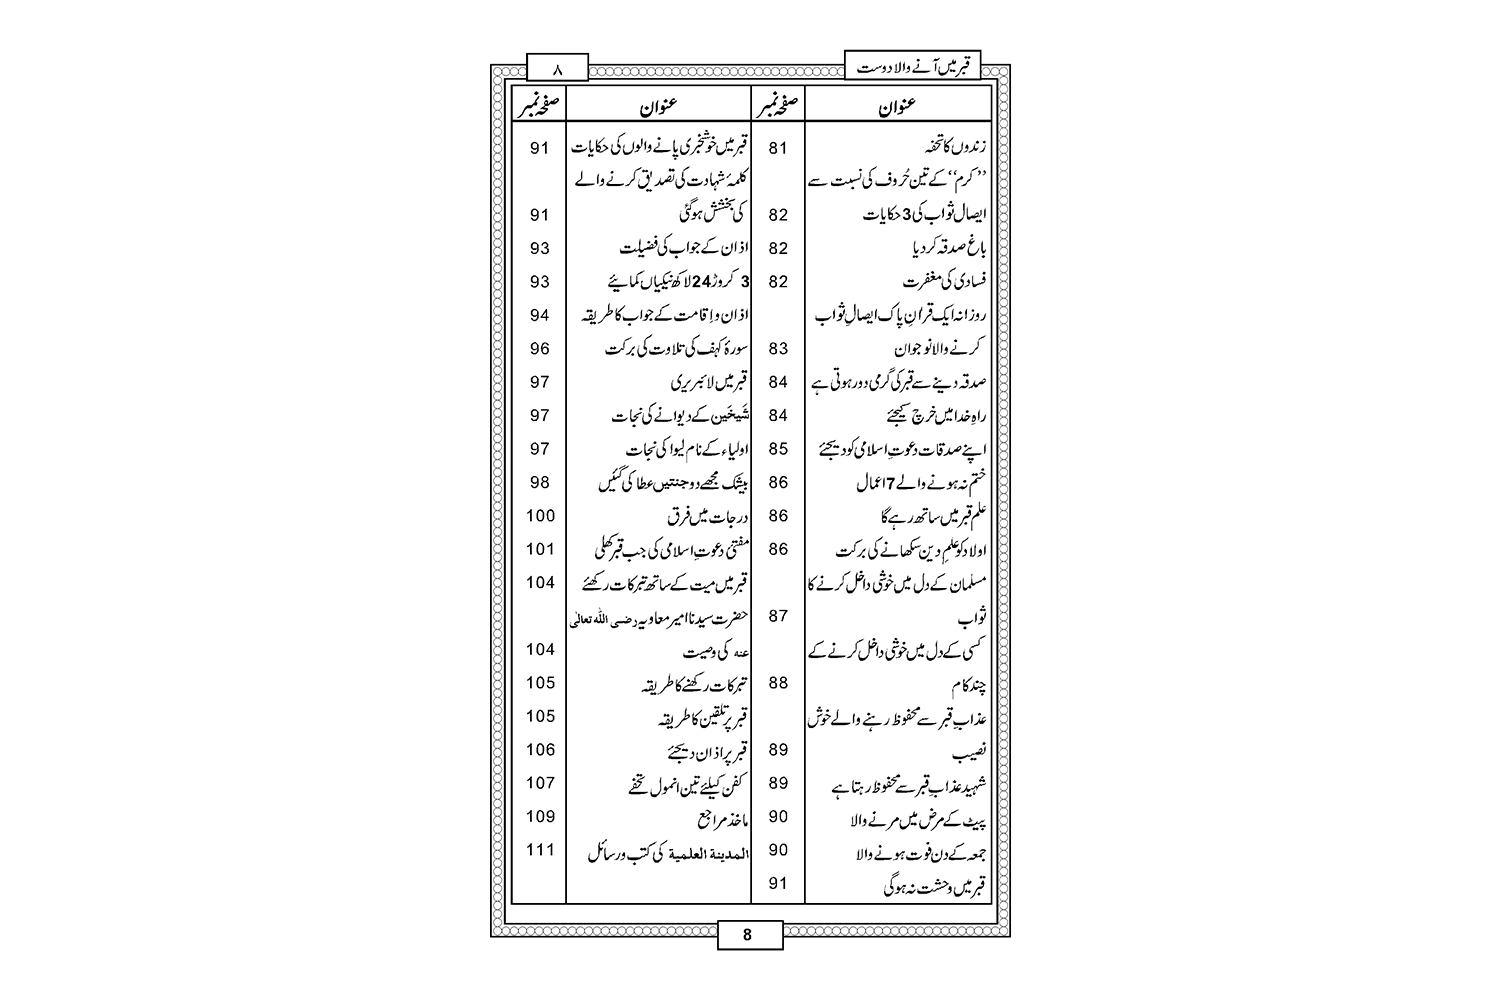 قبر میں آنے والا دوست
۸
عنوان
صفحہ نمبر
عنوان
صفحہ نمبر
زندوں کا تحفہ
81
’’کرم‘‘ کے تین حُروف کی نسبت سے
ایصال ثواب کی 3 حکایات
82
باغ صدقہ کر دیا
82
فسادی کی مغفرت
82
روزانہ ایک قران پاک ایصالِ ثواب
کرنے والا نوجوان
83
صدقہ دینے سے قبر کی گرمی دور ہوتی ہے
84
راہِ خدا میں خرچ کیجئے
84
اپنے صدقات دعوتِ اسلامی کو دیجئے
85
ختم نہ ہونے والے 7 اعمال
86
علم قبر میں ساتھ رہے گا
86
اولاد کو علمِ دین سکھانے کی برکت
86
مسلمان کے دل میں خوشی داخل کرنے کا
ثواب
87
کسی کے دل میں خوشی داخل کرنے کے
چند کام
88
عذابِ قبر سے محفوظ رہنے والے خوش
نصیب
89
شہید عذابِ قبر سے محفوظ رہتا ہے
89
پیٹ کے مرض میں مرنے والا
90
جمعہ کے دن فوت ہونے والا
90
قبر میں وحشت نہ ہوگی
91
قبر میں خوشخبری پانے والوں کی حکایات
91
کلمۂ شہادت کی تصدیق کرنے والے
کی بخشش ہوگئی
91
اذان کے جواب کی فضیلت
93
3 کروڑ 24 لاکھ نیکیاں کمائیے
93
اذان و اِقامت کے جواب کا طریقہ
94
سورۂ کہف کی تلاوت کی برکت
96
قبر میں لائبریری
97
شَیخَین کے دیوانے کی نجات
97
اولیاء کے نام لیوا کی نجات
97
بیشک مجھے دو جنتیں عطا کی گئیں
98
درجات میں فرق
100
مفتیٔ دعوتِ اسلامی کی جب قبر کھلی
101
قبر میں میت کے ساتھ تبرکات رکھئے
104
حضرت سیدنا امیر معاویہ رضی اللہ تعالیٰ
عنہ کی وصیت
104
تبرکات رکھنے کا طریقہ
105
قبر پر تلقین کا طریقہ
105
قبر پر اذان دیجئے
106
کفن کیلئے تین انمول تحفے
107
ماخذ مراجع
109
المدینۃ العلمیۃ کی کتب و رسائل
111
8